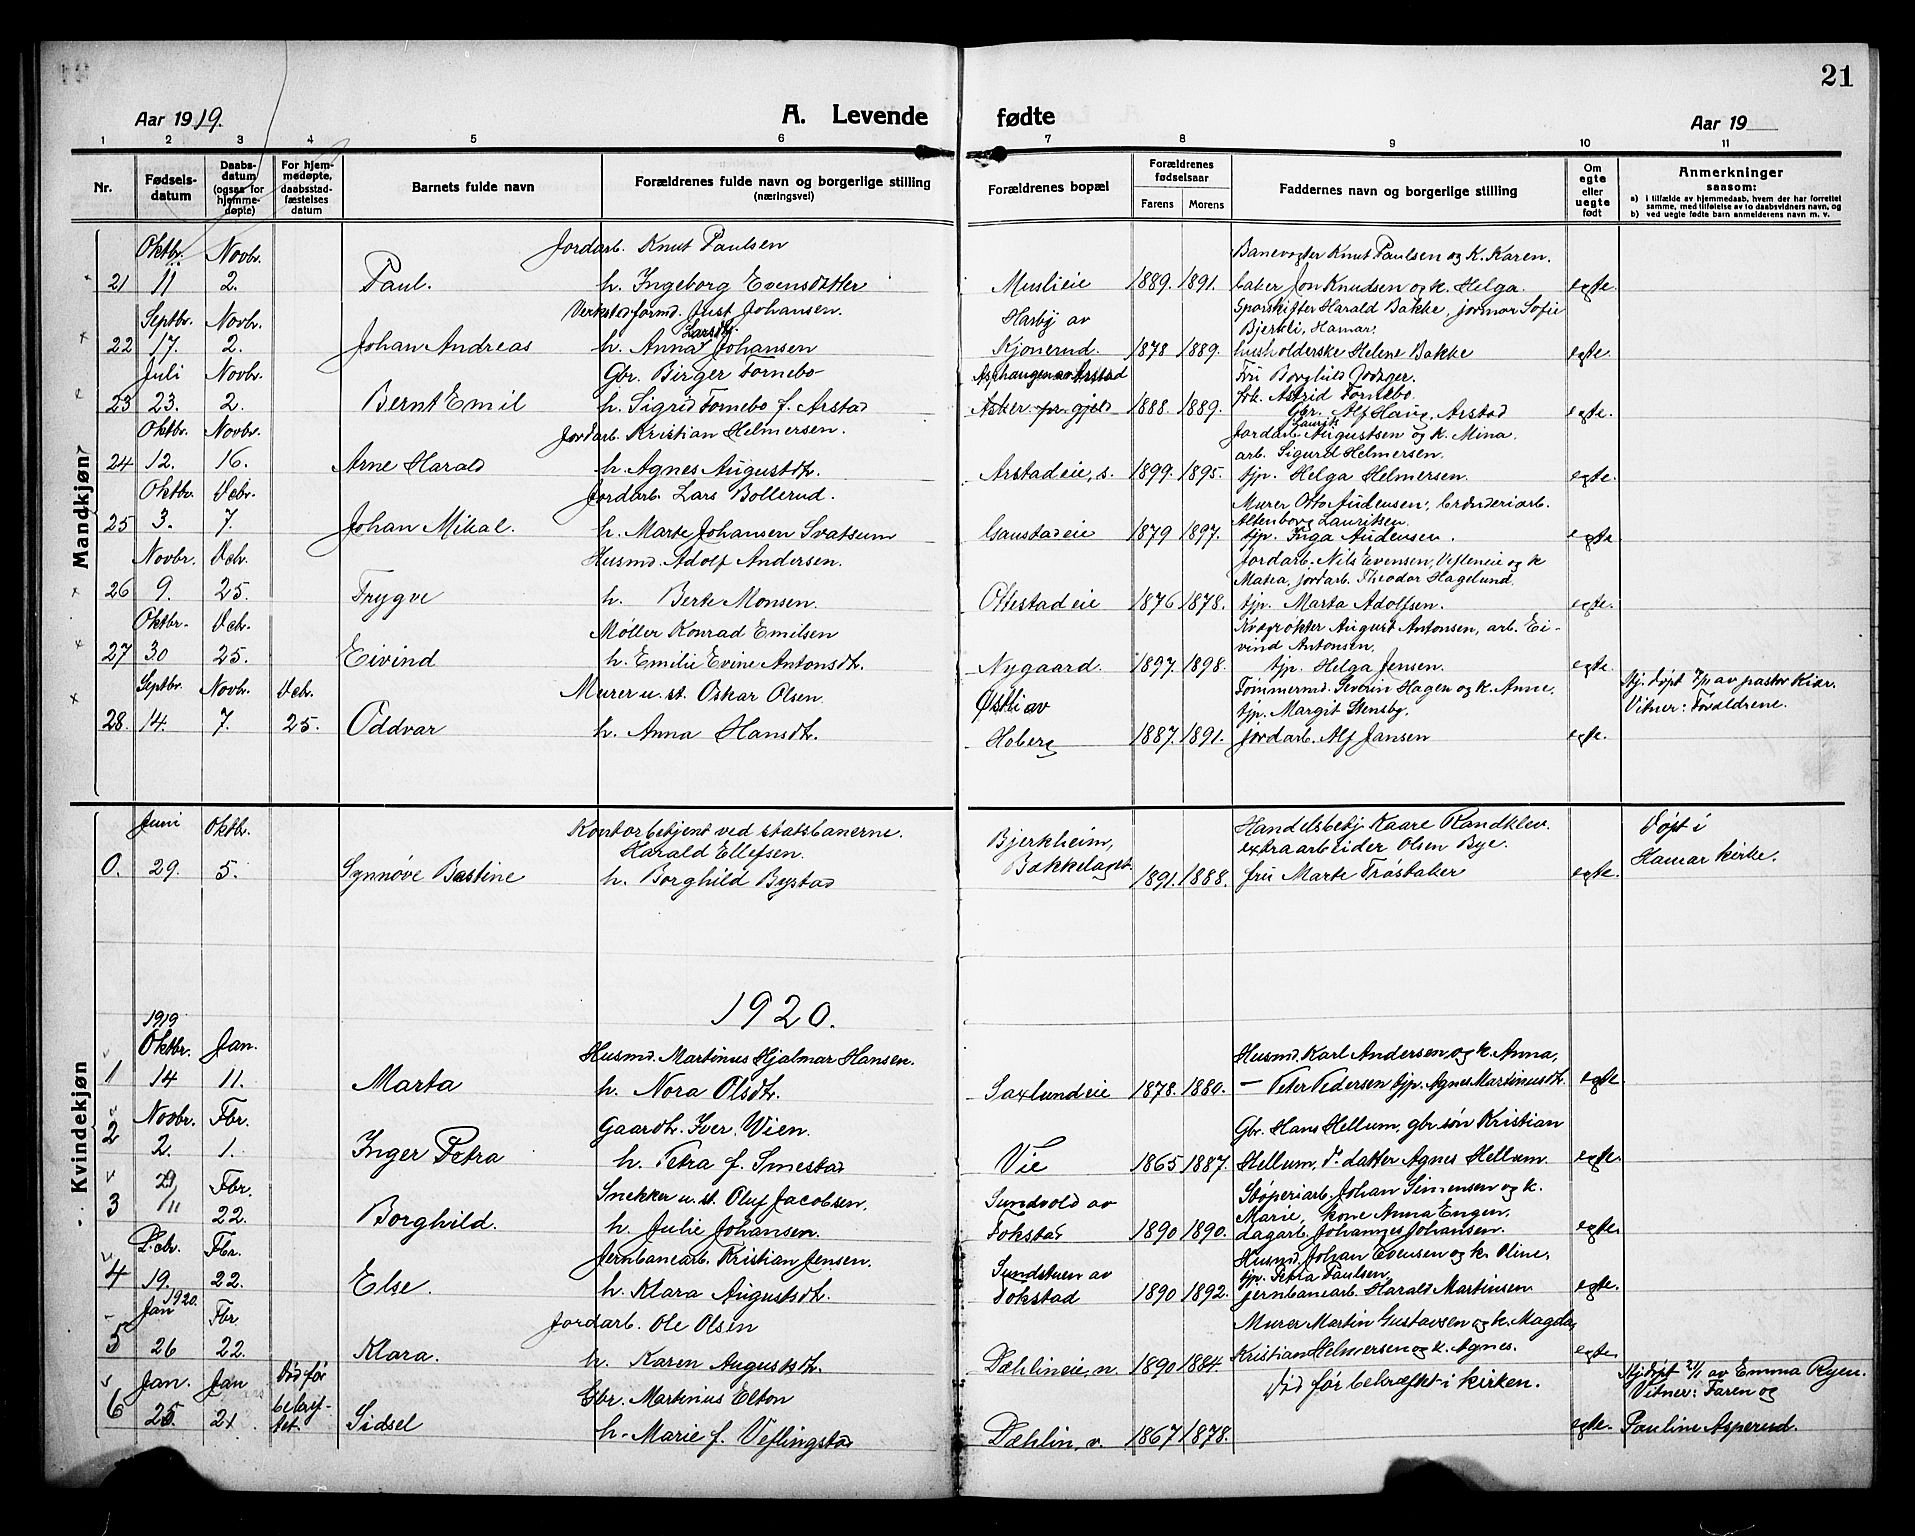 21
Aar 1919.
A. Levende fødte
Aar 19
1 2 3 4 5 6 7 8 9 10 11
Nr.
Fødsels-datum
Daabs-datum (ogsaa for hjemme-døpte)
For hjem-medøpte, daabsstad-fæstelses datum
Barnets fulde navn
Forældrenes fulde navn og borgerlige stilling (næringsvei)
Forældrenes bopæl
Forældrenes fødselsaar
Farens Morens
Faddernes navn og borgerlige stilling
Om egte eller uegte født
Anmerkninger saasom:
a) i tilfælde av hjemmedaab, hvem der har forrettet samme, med tilføielse av to daabsvidners navn, og
b) ved uegte fødte barn anmelderens navn m. v.
Mandkjøn
Oktbr. Novbr. Jordarb. Knut Paulsen Banevogter Knut Paulsen og K. Karen.
21 11 2. Paul. h. Ingeborg Evensdatter Muslieie 1889. 1891. baker Jon Knudsen og k. Helga. egte.
Septbr. Novbr. Verkstedformd. Just Johansen. Hasby av Sporskifter Harald Bakke, jormor Sofie
Larsdtr. Bjerkli, Hamar.
22 17. 2. Johan Andreas h. Anna Johansen Kjonerud. 1878 1889. husholderske Helene Bakke egte.
Juli Novbr. Gbr. Birger Fornebo Fru Borghild
23 23. 2. Bernt Emil h. Sigrid Fornebo f. Arstad Asker 1888. 1889. frk. Astrid Fornebo. egte.
Gbr. Alf Haug, Arstad
Oktbr. Novbr. Jordarb. Kristian Helmersen. Jordarb. Laurits Augustsen og k. Mina.
arb. Sigurd Helmersen.
24 12. 16. Arne Harald h. Agnes Augustdtr. Arstadeie, s. 1899. 1895. tjp. Helga Helmersen. egte.
Oktbr. Dcbr. Jordarb. Lars Bollerud. Murer Otto Audensen,
Altenborg Lauritsen.
25 3. 7. Johan Mikal. h. Marte Johansen Svatsum Gaustadeie 1879 1897. tjp. Inga Audensen. egte
Novbr. Dcbr. Husmd. Adolf Andersen. Jordarb. Nils Evensen, og k
Matea, jordarb. Theodor Hagelund.
26 9. 25. Trygve h. Berte Monsen. Ottestadeie 1876 1878. tjp. Marta Adolfsen. egte.
Oktbr. Dcbr. Møller Konrad Emilsen Kvegrøkter August Antonsen, arb. Ei-
vind Antonsen.
27 30 25. Eivind h. Emilie Evine Antonsdtr. Nygaard. 1897. 1898. tjp. Helga Jensen. egte.
Septbr. Novbr. Dcbr. Murer u. st. Oskar Olsen. Østli av Tømmermd. Severin Hagen og k. Anne, Hj. døpt 7/11 av pastor Kiær.
tjp. Margit Stensby. Vitner: Forældrene.
28. 14. 7. 25. Oddvar h. Anna Hansdtr. Hoberg 1887. 1891. jordarb. Alf Jansen egte.
Kvindekjøn
Juni Oktbr. Kontorbetjent ved statsbanerne. Bjerkheim, Handelsbetj. Kaare Randklev. Døpt i
Harald Ellefsen. Bakkelaget. extraarbeider Olsen Bye. Hamar kirke.
0. 29. 5. Synnøve Bastine h. Borghild Bystad 1891. 1888. fru Marte Frøstaker egte.
1920.
1919
Oktbr. Jan. Husmd. Martinus Hjalmar Hansen. Husmd. Karl Andersen og k. Anna,
1 14 11. Marta h. Nora Olsdtr. Saxlundeie 1878. 1880. — Peter Pedersen tjp. Agnes Martinusdtr. egte.
Novbr. Fbr. Gaardbr. Iver Vien. Gbr. Hans Hellum, gbr. søn Kristian
2 2. 1. Inger Petra h. Petra f. Smestad Vie 1865 1887. Hellum, d. datter Agnes Hellum. egte.
Fbr. Snekker u. st. Oluf Jacobsen. Sundvold av Støperiarb. Johan Simensen og k.
Marie, kone Anna Engen.
3 29/11 22. Borghild. h. Julie Johansen. Fokstad 1890 1890. dagarb. Johannes Johansen. egte.
Dcbr. Fbr. Jernbanearb. Kristian Jensen. Sundstuen av Husmd. Johan Evensen og k. Oline,
tjp. Petra Paulsen,
4 19. 22. Else. h. Klara Augustsdtr. Fokstad 1890 1892. jernbanearb. Harald Martinsen egte.
Jan 1920. Fbr. Jordarb. Ole Olsen Murer Martin Gustavsen og k. Magda,
5 26 22. Klara. h. Karen Augustsdtr. Dæhlineie, n. 1890 1884. Kristian Helmersen og k. Agnes. egte.
Jan. Jan Død før bekræf-tet. Gbr. Martinius Elton Død før bekræftet i kirken. Hj. døpt 21/1 av Emma Ryen.
Vitner: Faren og
6 21 Sidsel h. Marie f. Veflingstad Dæhlin, v. 1867 1878. egte. Pauline Asperud.